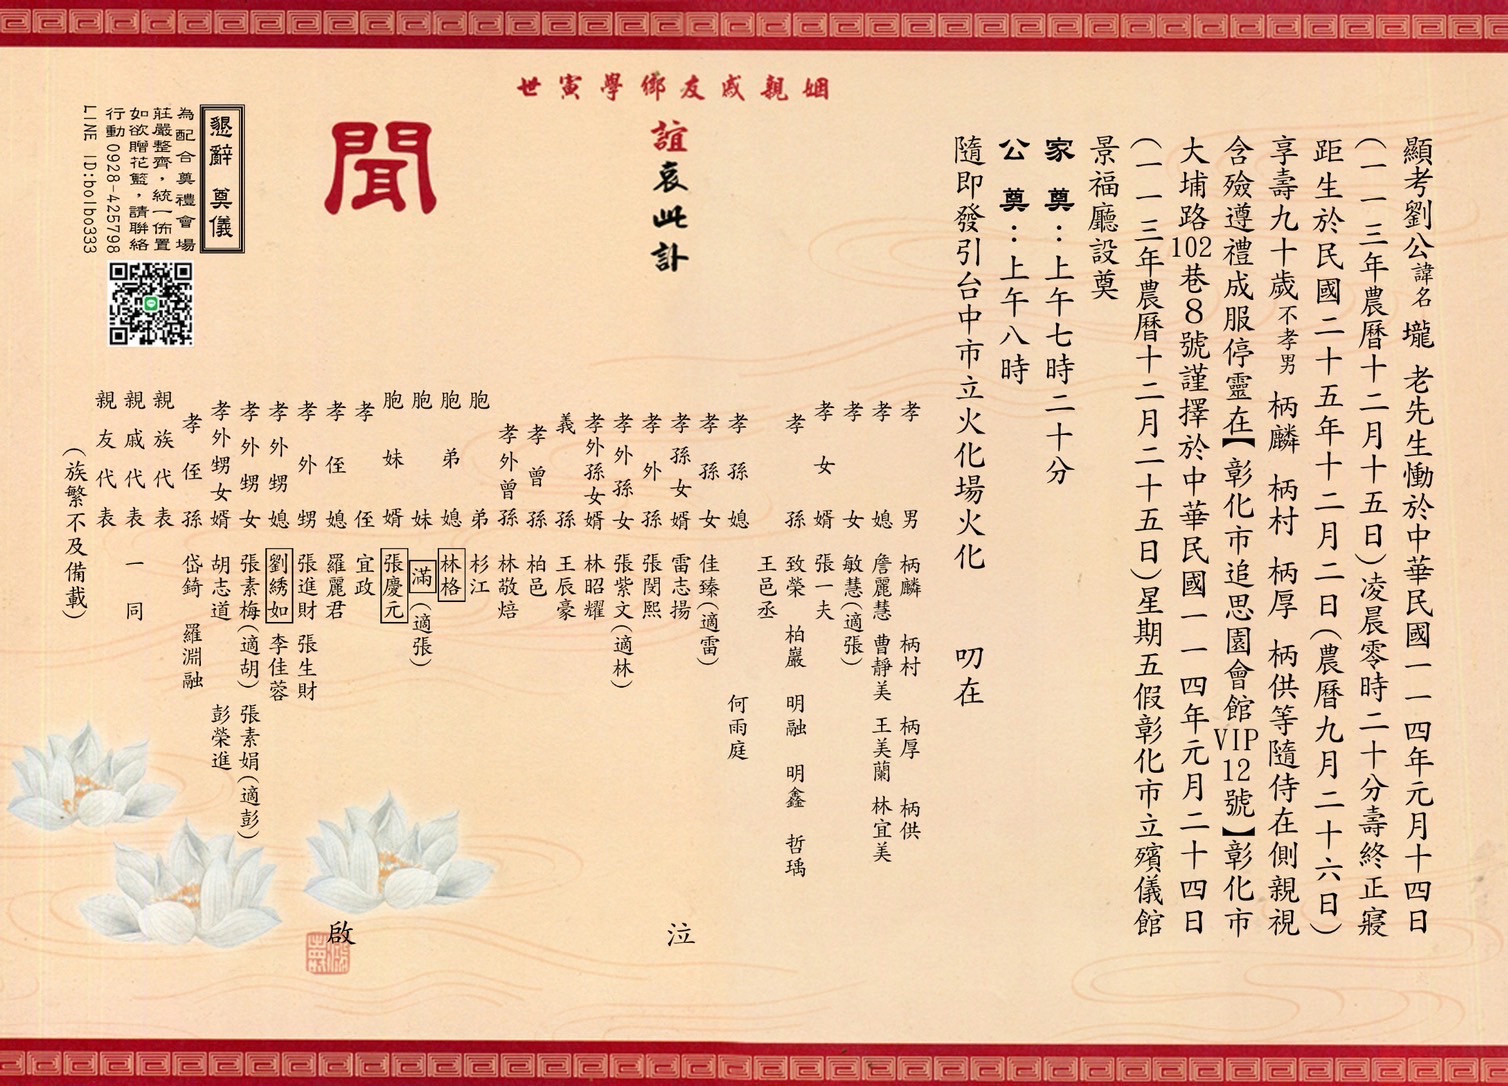 顯考劉公諱名 壠 老先生慟於中華民國一一四年元月十四日
(一一三年農曆十二月十五日)凌晨零時二十分壽終正寢
距生於民國二十五年十二月二日(農曆九月二十六日)
享壽九十歲不孝男 柄麟 柄村 柄厚 柄供等隨侍在側親視
含殮遵禮成服停靈在【彰化市追思園會館VIP12號】彰化市
大埔路102巷8號謹擇於中華民國一一四年元月二十四日
(一一三年農曆十二月二十五日)星期五假彰化市立殯儀館
景福廳設奠
家奠:上午七時二十分
公奠:上午八時
隨即發引台中市立火化場火化 叨在
姻親戚友鄉學寅世
誼哀此訃
聞
孝男 柄麟 柄村 柄厚 柄供
孝媳 詹麗慧 曹靜美 王美蘭 林宜美
孝女 敏慧(適張)
孝女婿 張一夫
孝孫 致榮 柏巖 明融 明鑫 哲瑀
王邑丞
孝孫媳 何雨庭
孝孫女 佳臻(適雷)
孝孫女婿 雷志揚
孝外孫 張閔熙
孝外孫女 張紫文(適林)
孝外孫女婿 林昭耀
義孫 王辰豪
孝曾孫 柏邑
孝外曾孫 林敬焙
胞弟 杉江
胞弟媳 林格
胞妹 滿(適張)
胞妹婿 張慶元
孝侄 宜政
孝侄媳 羅麗君
孝外甥 張進財 張生財
孝外甥媳 劉綉如 李佳蓉
孝外甥女 張素梅(適胡) 張素娟(適彭)
孝外甥女婿 胡志道 彭榮進
孝侄孫 岱錡 羅淵融
親族代表
親戚代表 一同
親友代表
(族繁不及備載)
泣
啟
懇辭 奠儀
為配合奠禮會場
莊嚴整齊,統一佈置
如欲贈花籃,請聯絡
行動0928-425798
LINE ID:bolbo333